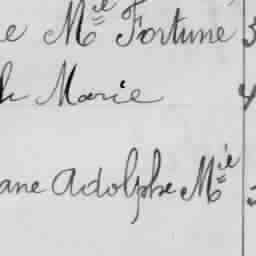 e M^ie Fortune 3
h Marie 4
ane Adolphe M^ie